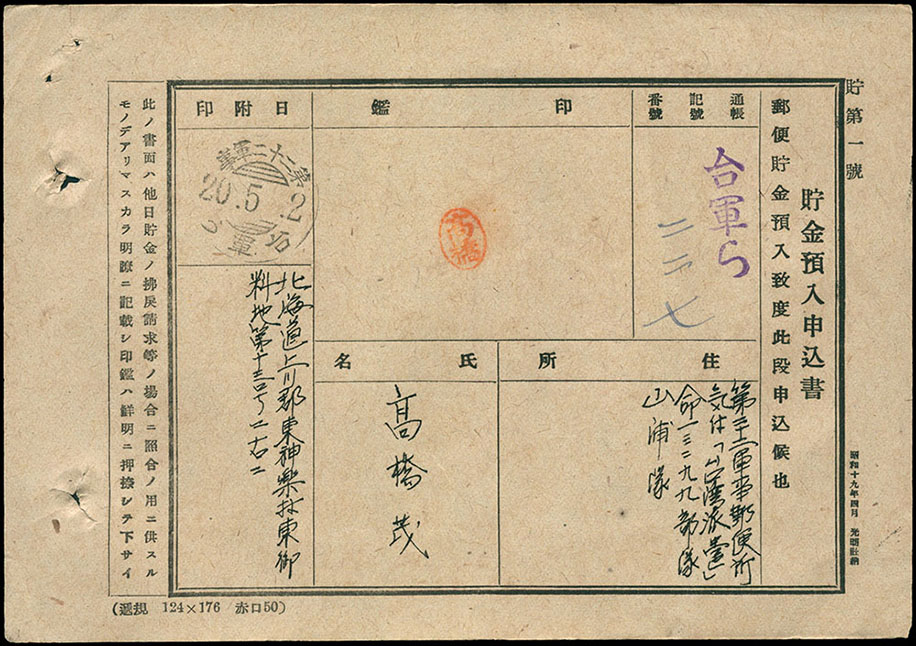 貯第一號
貯金預入申込書
郵便貯金預入致度此段申込候也
昭和十九年四月
通帳
記號
番號
台軍ら
二二七
印鑑
高橋
日附印
第二十二軍事
20.5.2
台軍
住所
第二十二軍事郵便所
気付「台湾派遣」
命一三二九九部隊
山浦隊
氏名
高橋茂
北海道上川郡東神楽村東御
料地第十三号
此ノ書面ハ他日貯金ノ拂戻請求等ノ場合ニ照合ノ用ニ供スル
モノデアリマスカラ明瞭ニ記載シ印鑑ハ鮮明ニ押捺シテ下サイ
(遞規 124×176 赤口50)